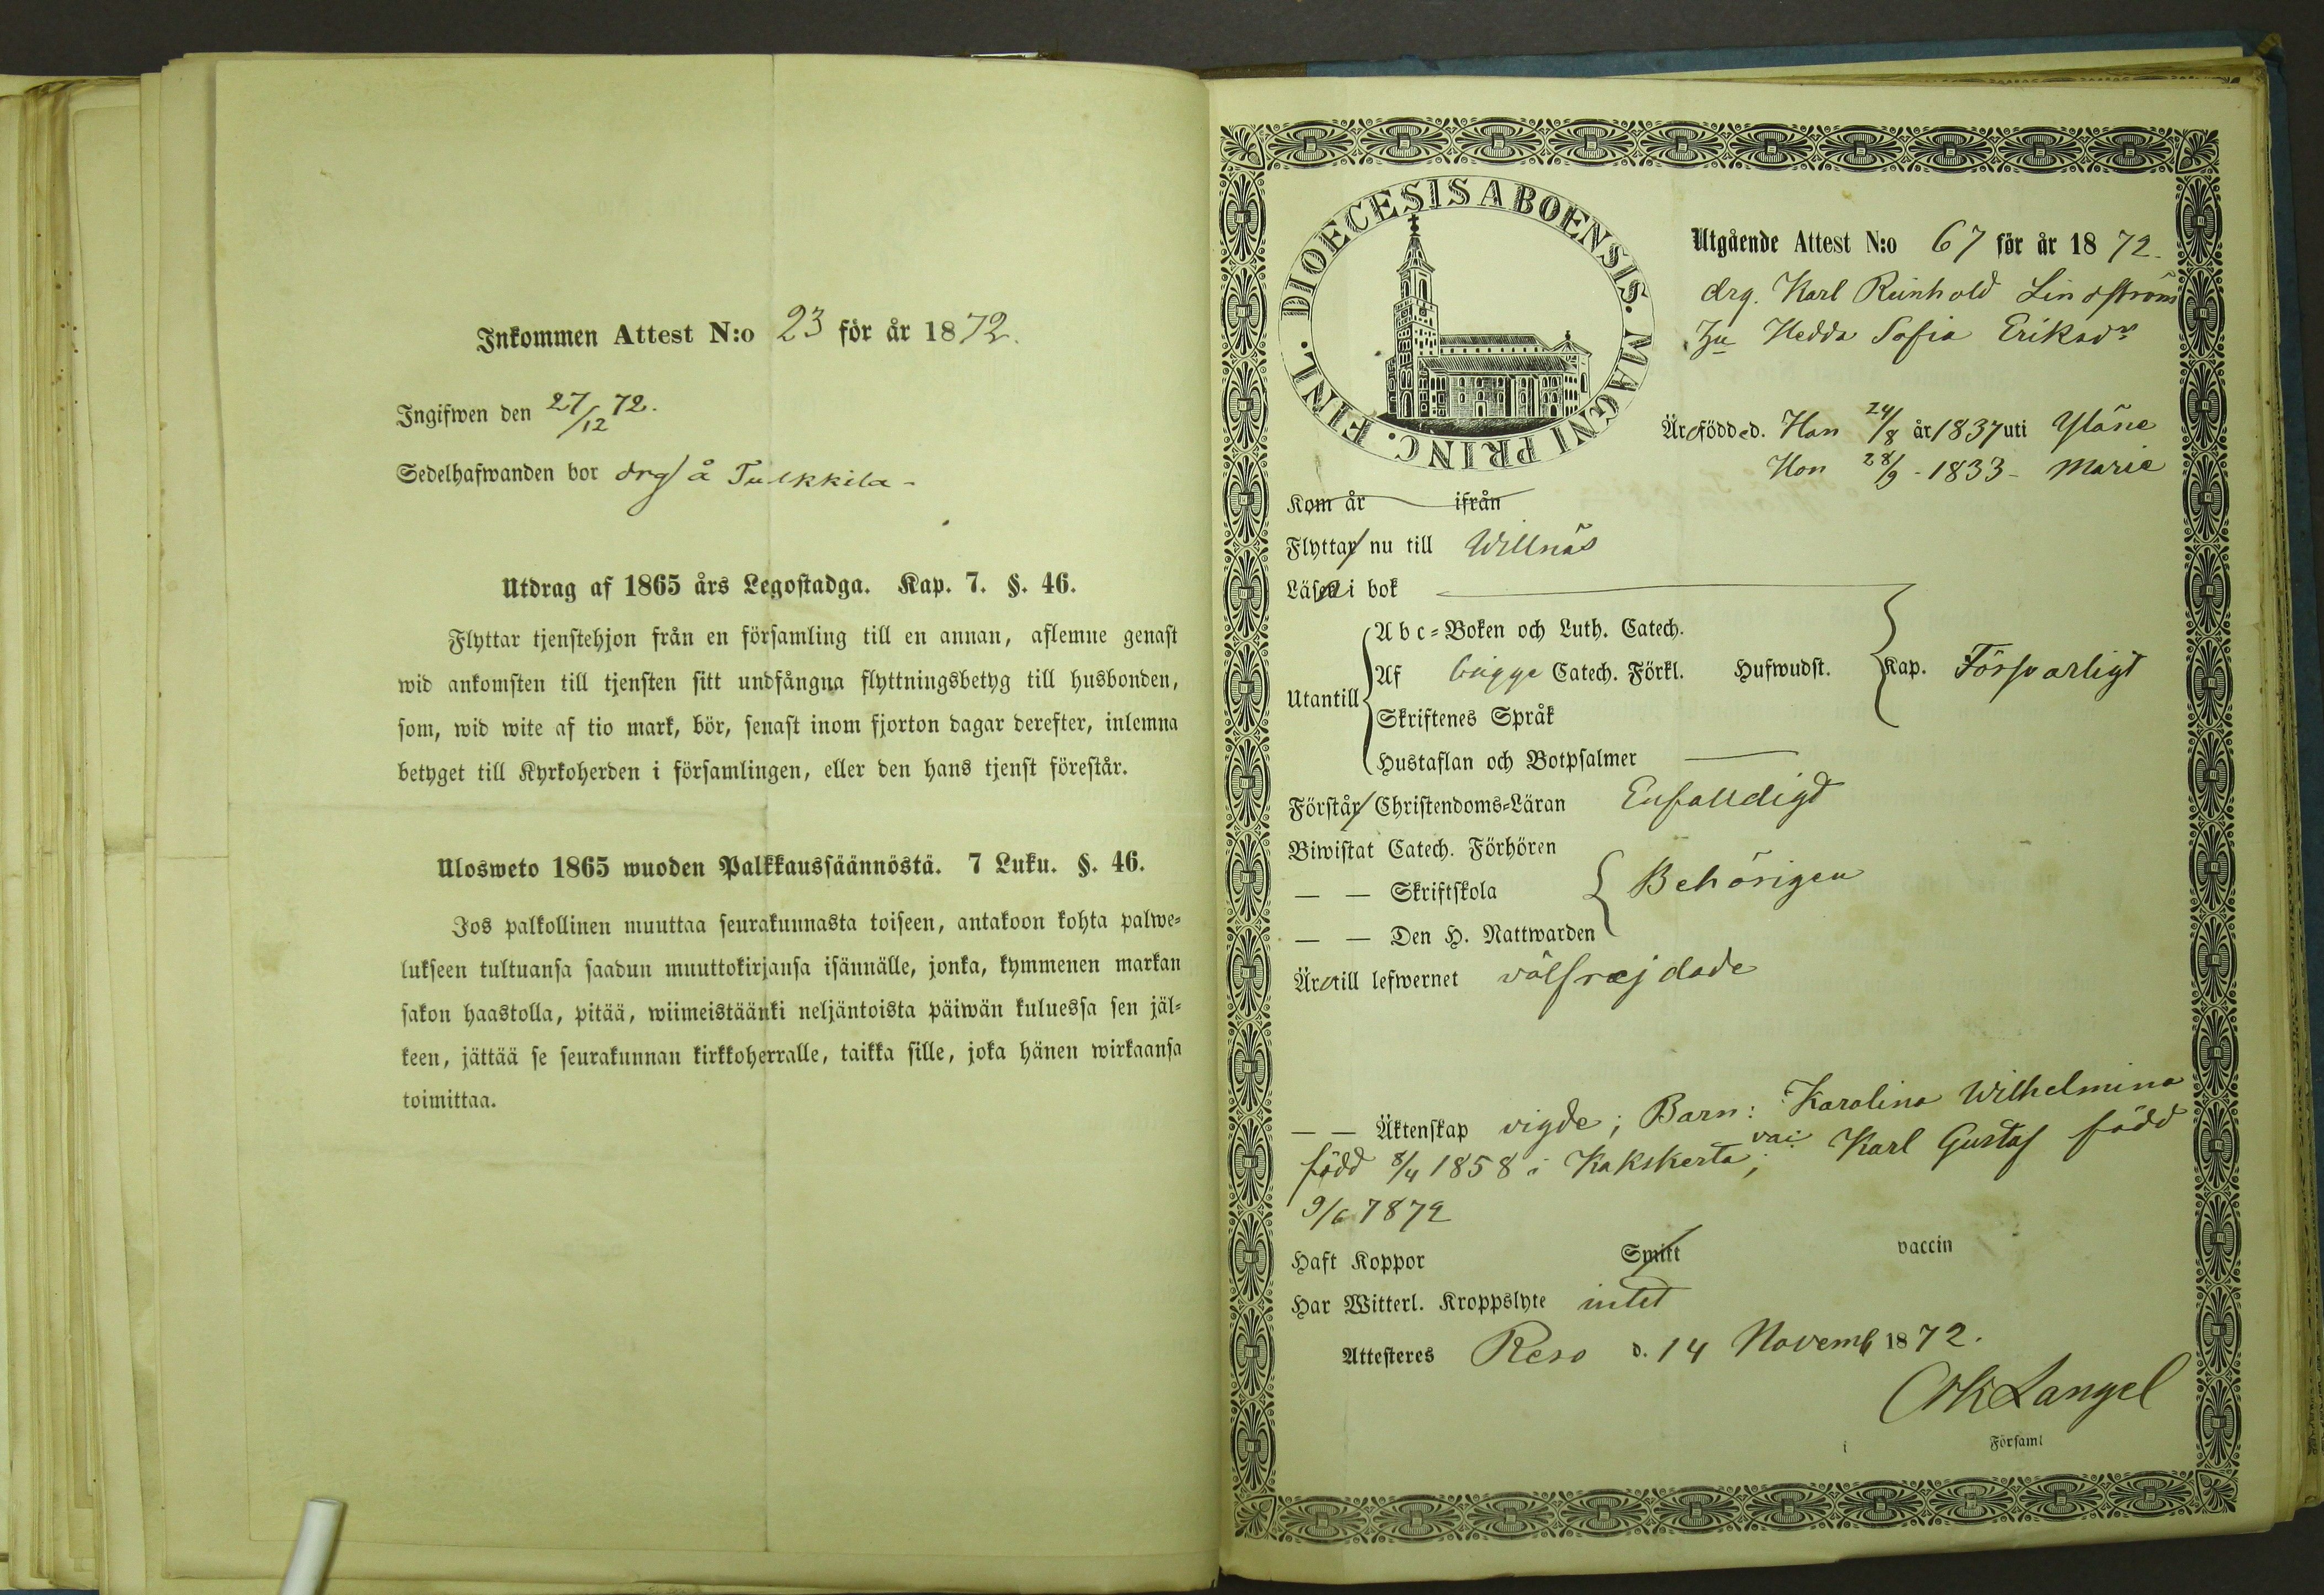 Inkommen Attest N:o 23 för år 1872.
Ingifwen den 27/12 72.
Sedelhafwanden bor drg å Tulkkila -
Utdrag af 1865 års Legostadga. Kap. 7. §. 46.
Flyttar tjenstehjon från en församling till en annan, aflemne genast
wid ankomsten till tjensten sitt undfångna flyttningsbetyg till husbonden,
som, wid wite af tio mark, bör, senast inom fjorton dagar derefter, inlemna
betyget till Kyrkoherden i församlingen, eller den hans tjenst förestår.
Ulosweto 1865 wuoden Palkkaussäännöstä. 7 Luku. §. 46.
Jos palkollinen muuttaa seurakunnasta toiseen, antakoon kohta palwe-
lukseen tultuansa saadun muuttokirjansa isännälle, jonka, kymmenen markan
sakon haastolla, pitää, wiimeistäänki neljäntoista päiwän kuluessa sen jäl-
keen, jättää se seurakunnan kirkkoherralle, taikka sille, joka hänen wirkaansa
toimittaa.
FINL. DIOECESIS ABOENSIS. MAGNI PRINC.
Utgående Attest N:o 67 för år 1872.
drg. Karl Reinhold Lindström
Hu Hedda Sofia Eriksdr
Äro födde d. Han 24/8 år 1837 uti Yläne
Hon 28/9 - 1833 - Marie
Kom år ifrån
Flyttar nu till Willnäs
Läsa i bok
Abc-Boken och Luth. Catech.
Utantill Af bägge Catech. Förkl. Hufwudst. Kap. Försvarligt
Skriftenes Språk
Hustaflan och Botpsalmer
Förstår Christendoms-Läran Enfaldigt
Biwistat Catech. Förhören
— — Skriftskola Behörigen
— — Den H. Nattwarden
Äro till lefwernet välfrejdade
— — Äktenskap vigde; Barn: Karolina Wilhelmina
född 8/4 1858 i Kakskerta, vai; Karl Gustaf född
9/6 1872
Haft Koppor Smitt vaccin
Har Witterl. Kroppslyte intet
Attesteres Reso d. 14 Novemb 1872.
Langel
i Församl